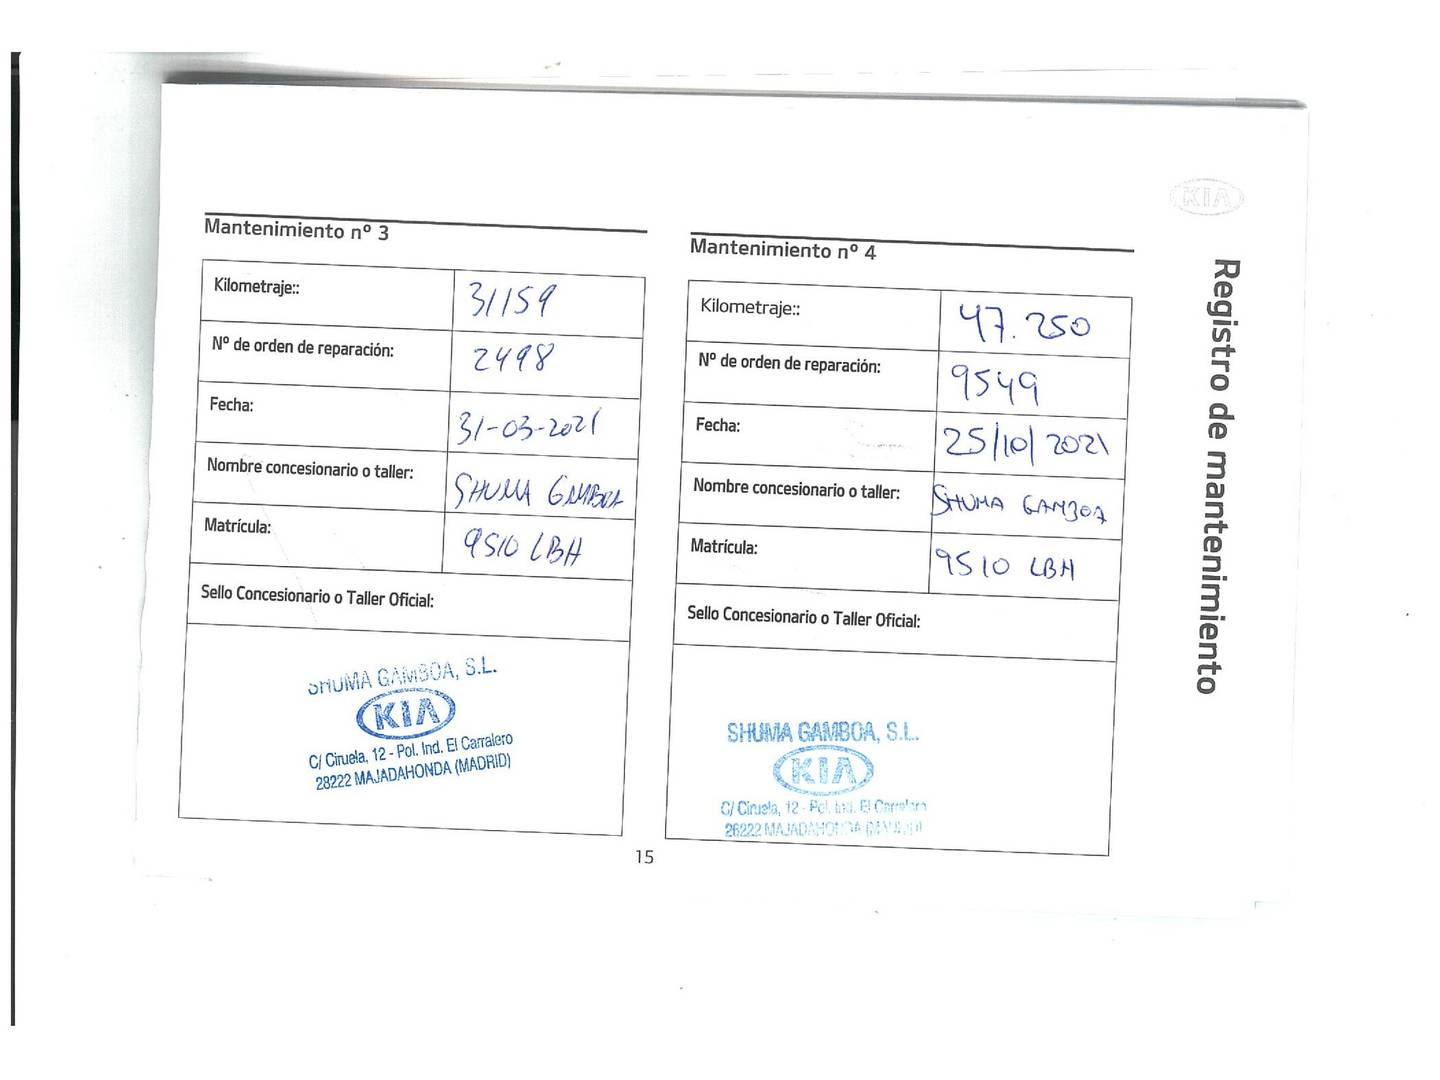 KIA
Registro de mantenimiento
Mantenimiento nº 3
Kilometraje:: 31159
Nº de orden de reparación: 2498
Fecha: 31-03-2021
Nombre concesionario o taller: SHUMA GAMBOA
Matrícula: 9510 LBH
Sello Concesionario o Taller Oficial:
SHUMA GAMBOA, S.L.
KIA
C/ Ciruela, 12 - Pol. Ind. El Carralero
28222 MAJADAHONDA (MADRID)
Mantenimiento nº 4
Kilometraje:: 47.250
Nº de orden de reparación: 9549
Fecha: 25/10/2021
Nombre concesionario o taller: SHUMA GAMBOA
Matrícula: 9510 LBH
Sello Concesionario o Taller Oficial:
SHUMA GAMBOA, S.L.
KIA
C/ Ciruela, 12 - Pol. Ind. El Carralero
28222 MAJADAHONDA (MADRID)
15